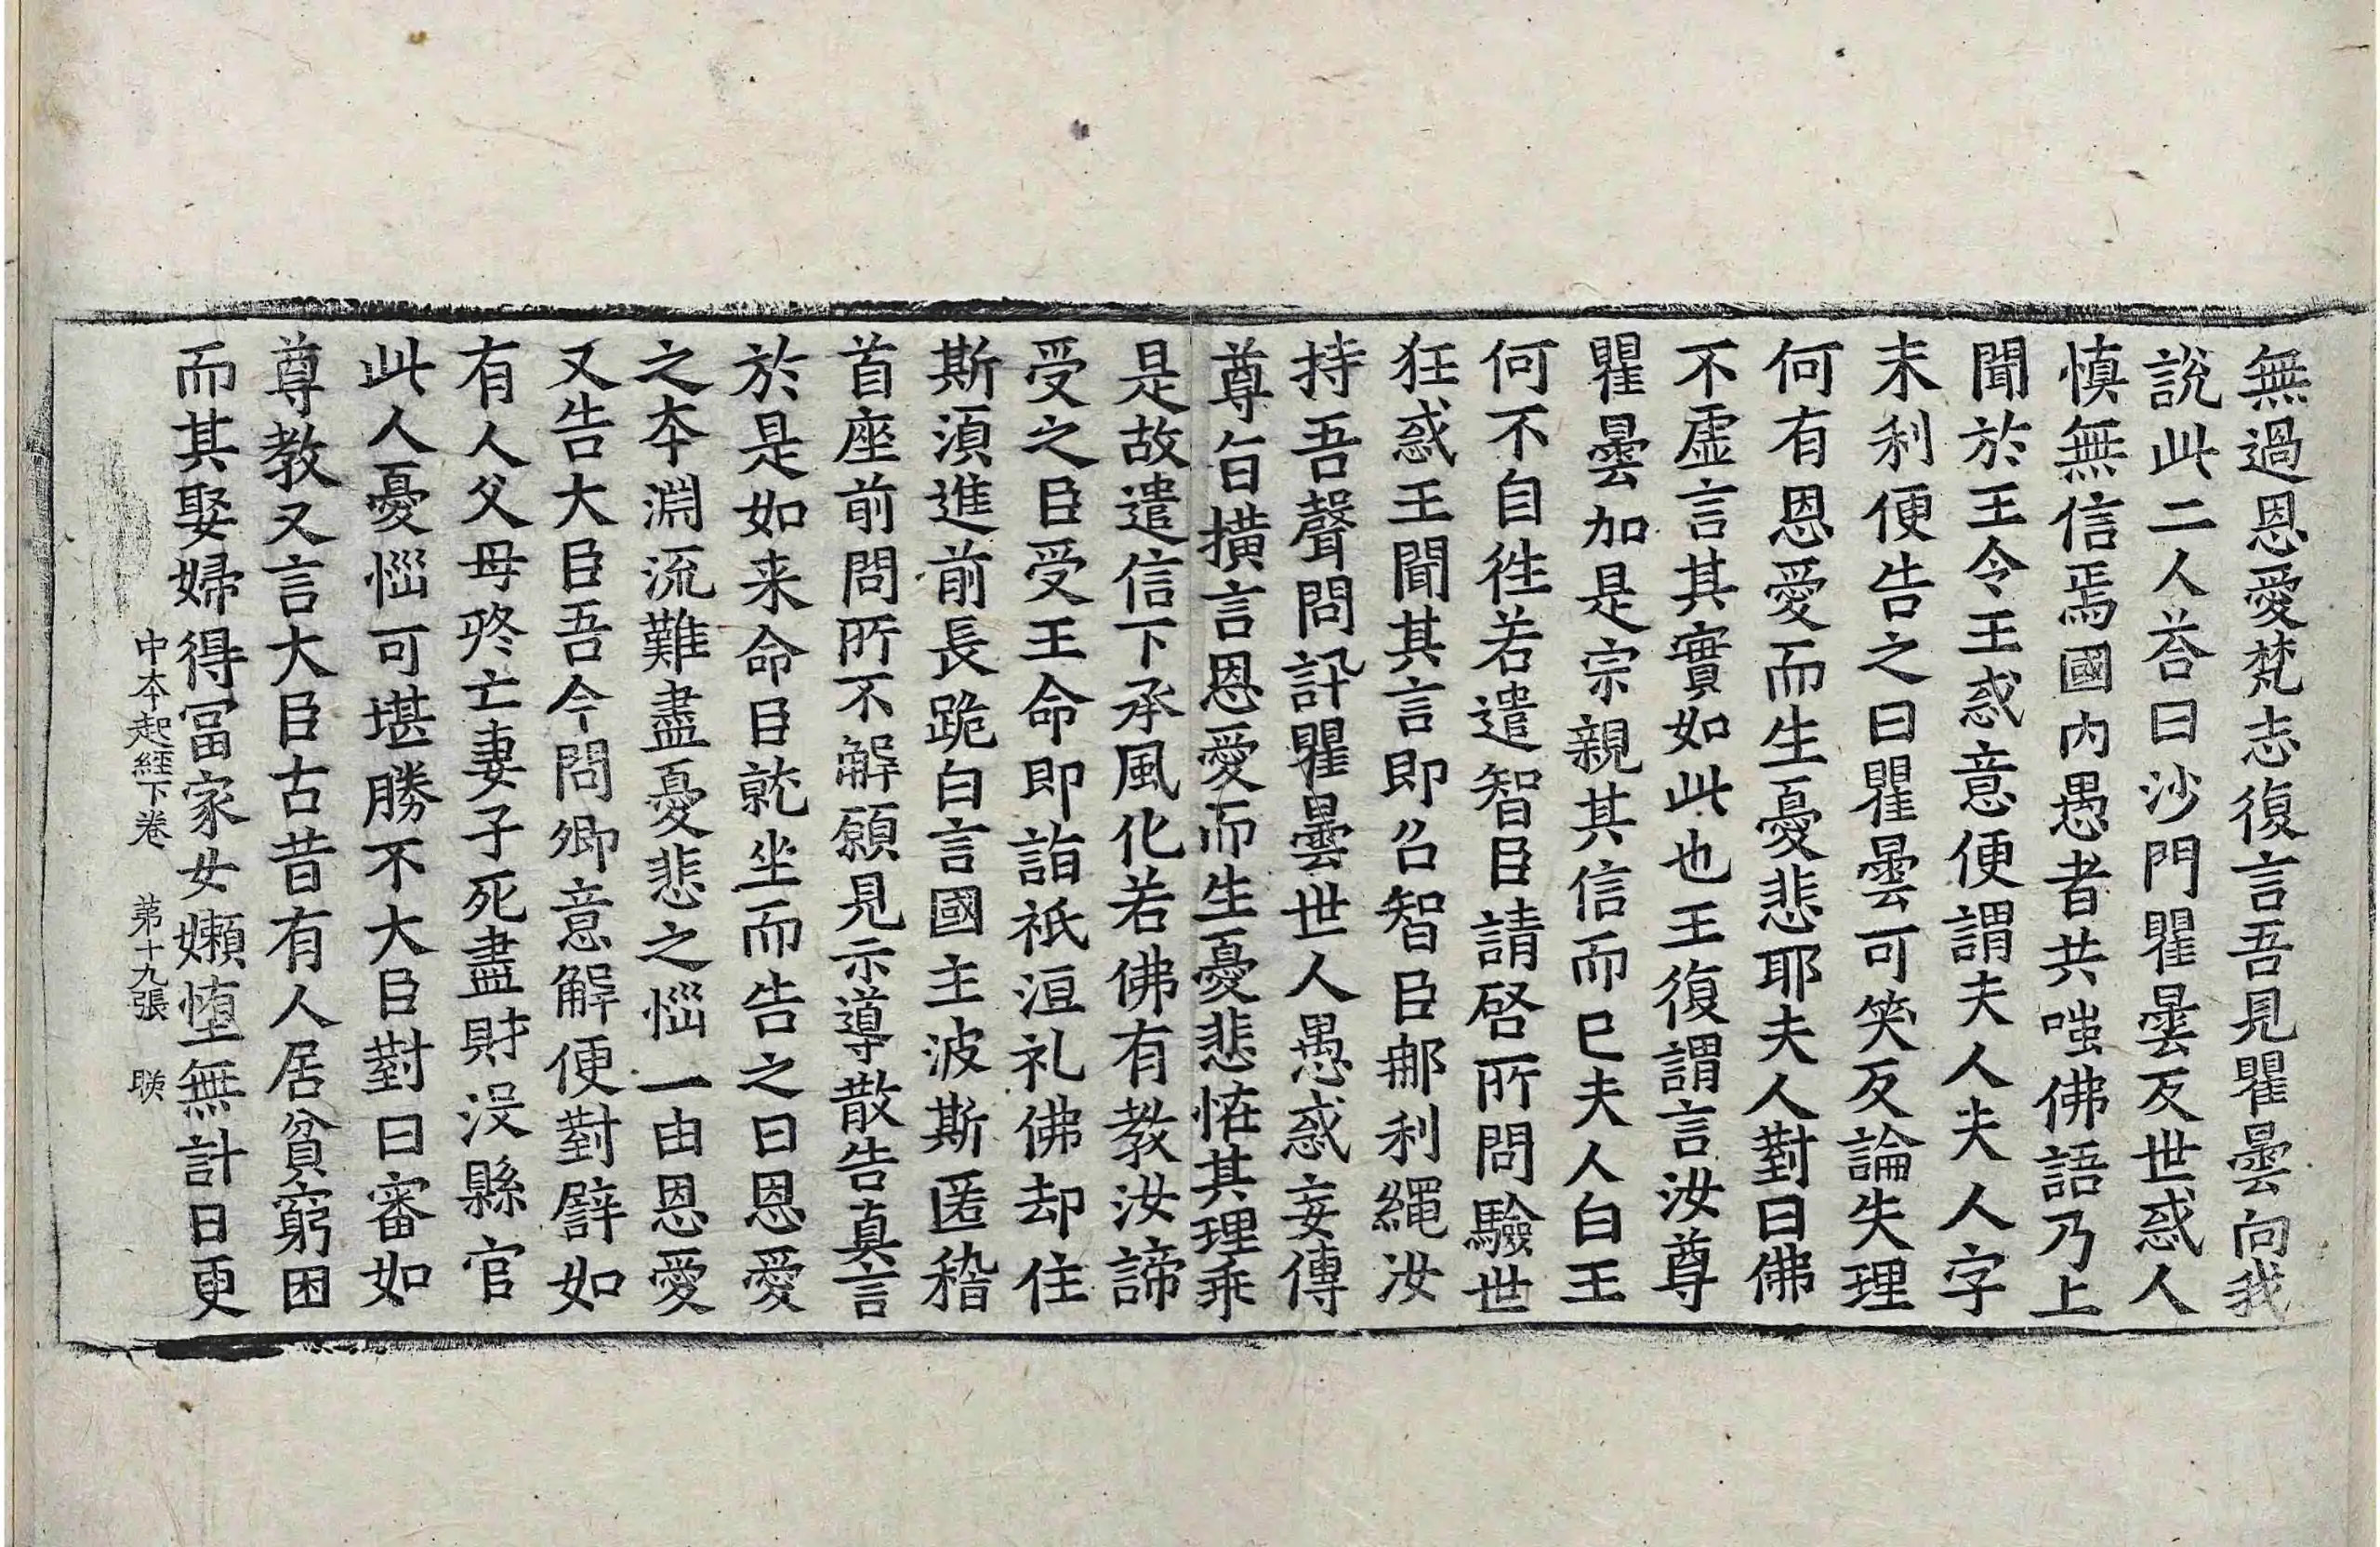 無過恩愛梵志復言吾見瞿曇向我
說此二人荅曰沙門瞿曇反世惑人
慎無信焉國内愚者共嗤佛語乃上
聞於王令王惑意便謂夫人夫人字
末利便告之曰瞿曇可笑反論失理
何有恩愛而生憂悲耶夫人對曰佛
不虛言其實如此也王復謂言汝尊
瞿曇加是宗親其信而已夫人白王
何不自徃若遣智臣請啓所問驗世
狂惑王聞其言即召智臣𨚗利繩汝
持吾聲問訊瞿曇世人愚惑妄傳
尊旨撗言恩愛而生憂悲恠其理乖
是故遣信下承風化若佛有教汝諦
受之臣受王命即詣祇洹礼佛却住
斯湏進前長跪白言國主波斯匿稽
首座前問所不解願見示導散告真言
於是如来命臣就坐而告之曰恩愛
之夲淵流難盡憂悲之惱一由恩愛
又告大臣吾今問卿意解便對譬如
有人父母終亡妻子死盡財没縣官
此人憂惱可堪勝不大臣對曰審如
尊教又言大臣古昔有人居貧窮困
而其娶婦得冨家女嬾惰無計日更
中夲起經下卷　第十九張　䀹